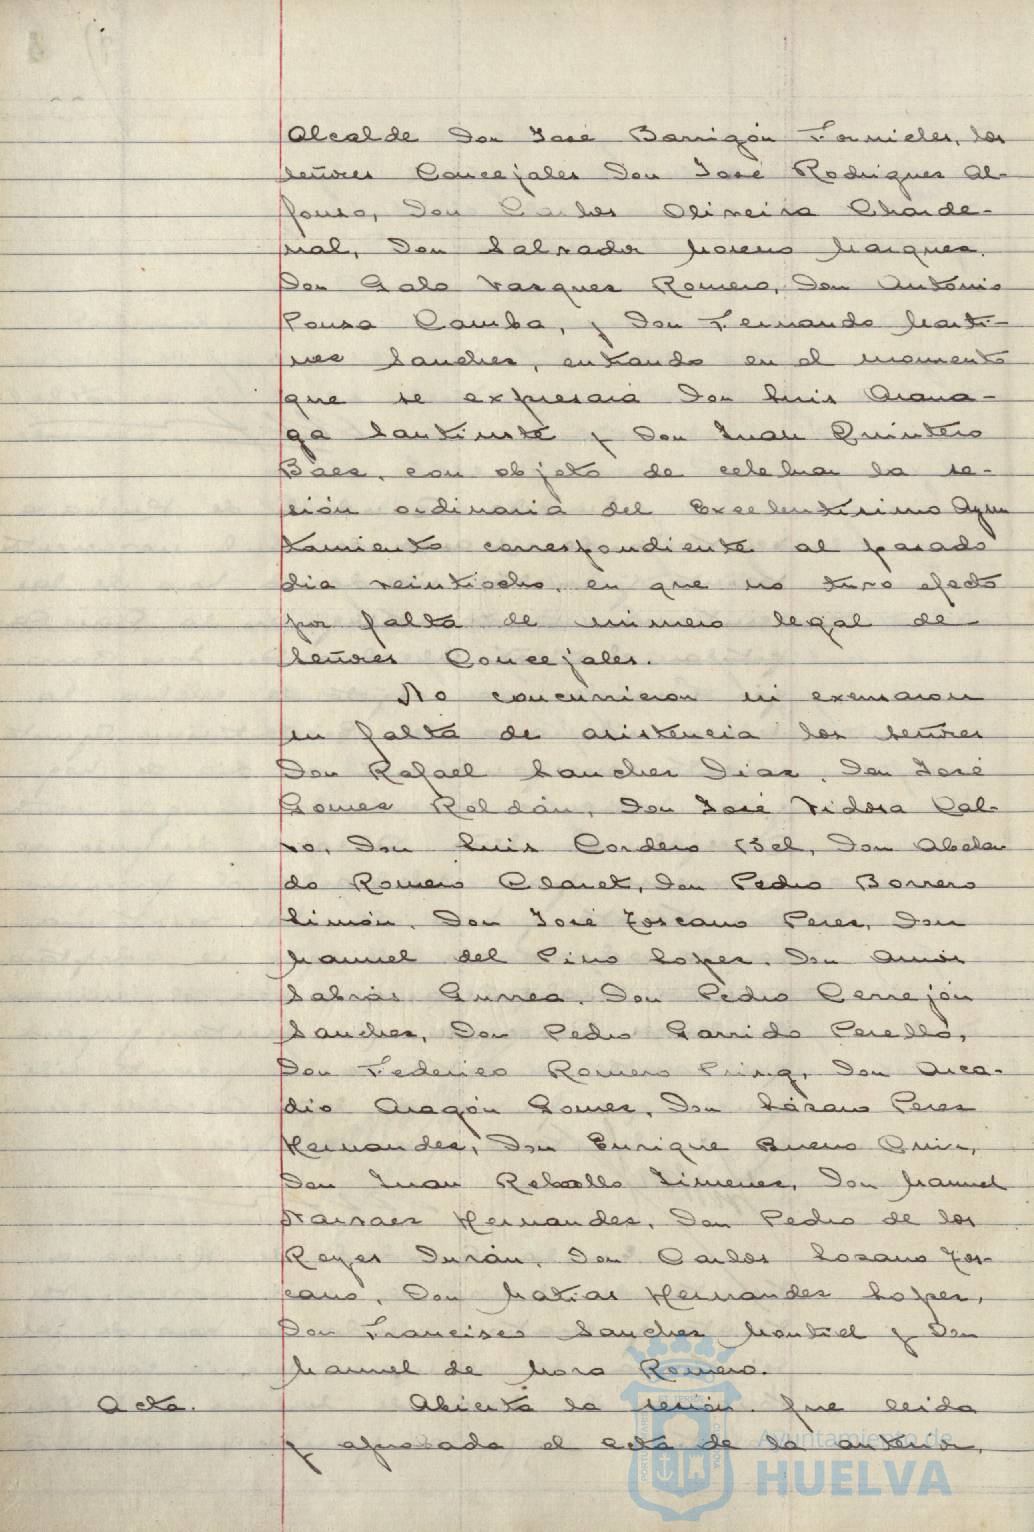 Alcalde Don José Barrigón Fornieles, los
señores Concejales Don José Rodriguez Al-
fonso, Don Carlos Oliveira Charde-
nal, Don Salvador Moreno Marquez,
Don Galo Vazquez Romero, Don António
Pousa Camba, y Don Fernando Marti-
nez Sanchez, entrando en el momento
que se expresará Don Luis Arana-
ga Santiuste y Don Juan Quintero
Báez, con objeto de celebrar la se-
sión ordinaria del Excelentísimo Ayun
tamiento correspondiente al pasado
dia veintiocho, en que no tuvo efecto
por falta de número legal de
señores Concejales.
No concurrieron ni excusaron
su falta de asistencia los señores
Don Rafael Sanchez Diaz, Don José
Gomez Roldán, Don José Vidosa Cal-
vo, Don Luis Cordero Bel, Don Abelar
do Romero Claret, Don Pedro Borrero
Limón, Don José Toscano Perez, Don
Manuel del Pino Lopez, Don Amós
Sabrás Gurrea, Don Pedro Cerrejón
Sanchez, Don Pedro Garrido Perelló,
Don Federico Romero Don Arca-
dio Aragón Gomez, Don Lázaro Perez
Hernandez, Don Enrique Bueno Cruz,
Don Juan Rebollo Jimenez, Don Manuel
Narvaez Hernandez, Don Pedro de los
Reyes Durán, Don Carlos Lozano Tos-
cano, Don Matias Hernandez Lopez,
Don Francisco Sanchez Montiel y Don
Manuel de Mora Romero.
Acta. Abierta la sesión fue leida
y aprobada el acta de la anterior,
Ayuntamiento de
HUELVA